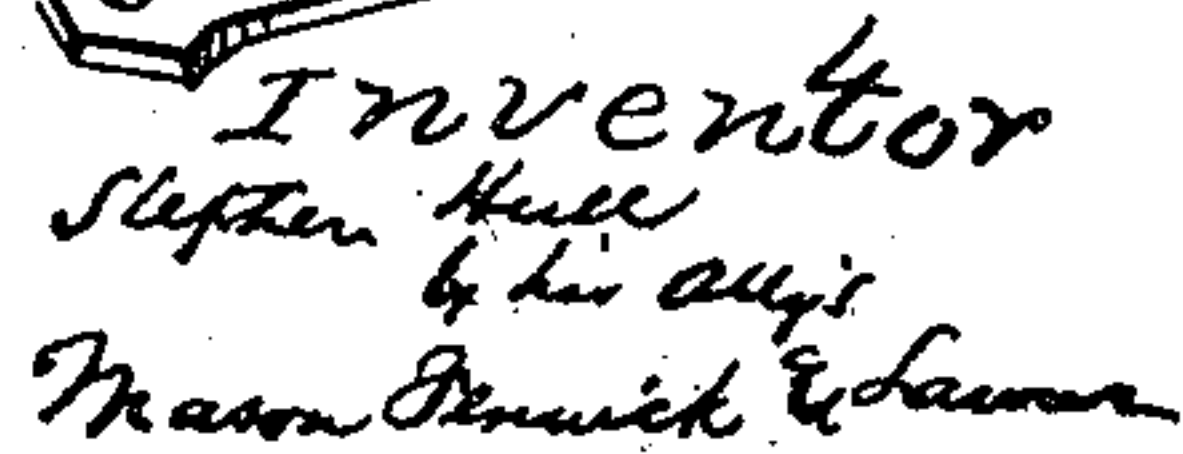 Inventor
Stephen Hull
by his Atty's
Mason Fenwick & Lawrence